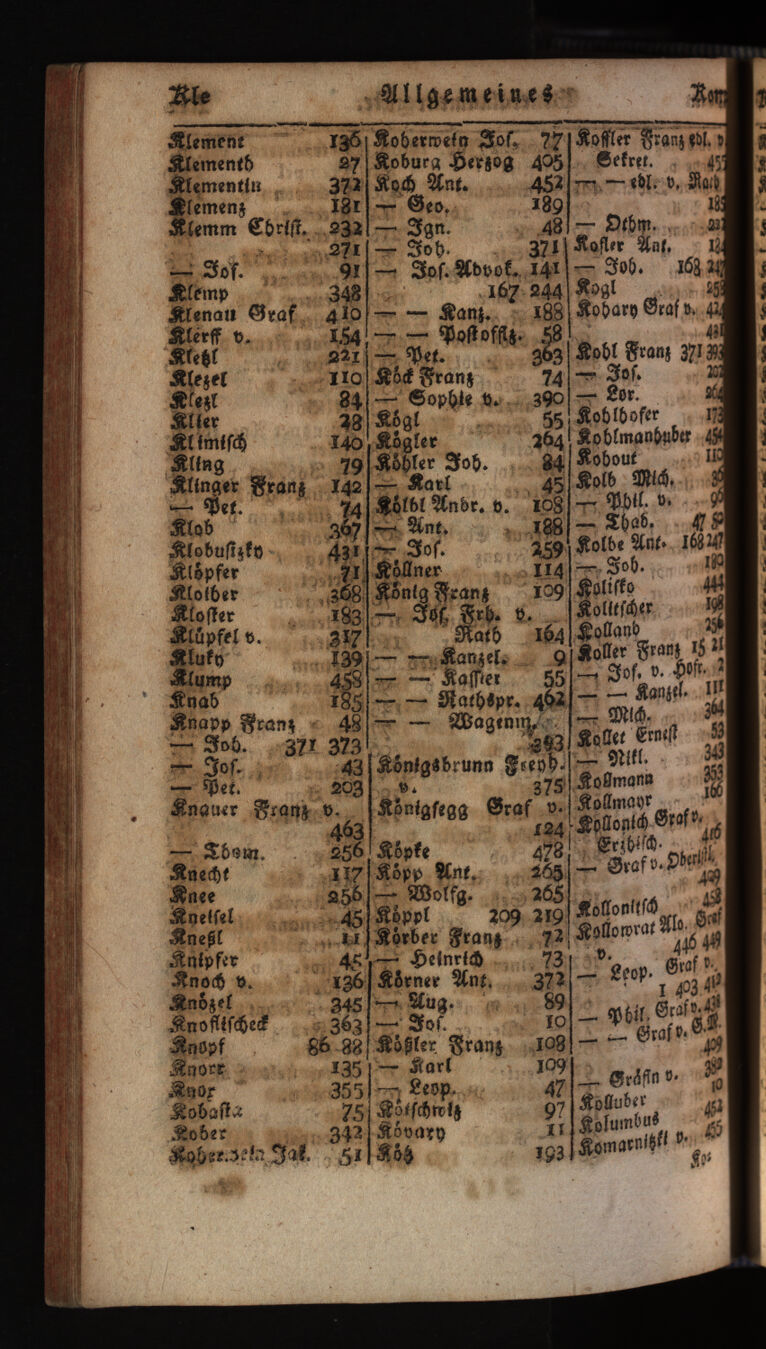 Kle Allgemeines Kom
Klement 136
Klementh 27
Klementin 372
Klemenz 181
Klemm Christ. 232
271
— Jos. 91
Klemp 348
Klenau Graf 410
Klerff v. 154
Kleßl 221
Klezel 110
Klezl 84
Klier 28
Klimisch 140
Kling 79
Klinger Franz 142
— Pet. 74
Klob 367
Klobusitzky 431
Klöpfer 71
Kloiber 368
Kloster 183
Klüpfel v. 317
Kluky 139
Klump 458
Knab 185
Knapp Franz 48
— Joh. 371 373
— Jos. 43
— Pet. 203
Knauer Franz v.
463
— Thom. 256
Knecht 117
Knee 256
Kneisel 45
Kneßl 11
Knipfer 45
Knoch v. 136
Knözel 345
Knoflischeck 363
Knopf 86 88
Knorr 135
Knor 355
Kobasta 75
Kober 342
Koberwein Jak. 51
Koberwein Jos. 77
Koburg Herzog 405
Koch Ant. 452
— Geo. 189
— Ign. 48
— Joh. 371
— Jos. Advok. 141
167 244
— — Kanz. 188
— — Postoffiz. 58
— Pet. 363
Köck Franz 74
— Sophie v. 390
Kögl 55
Kögler 264
Köhler Joh. 84
— Karl 45
Kölbl Andr. v. 108
— Ant. 188
— Jos. 259
Köllner 114
König Franz 109
— Jos. Frh. v.
Rath 164
— — Kanzel. 9
— — Kassier 55
— — Rathspr. 462
— — Wagenm.
393
Königsbrunn Freyh.
v. 375
Königsegg Graf v.
124
Köpke 478
Köpp Ant. 265
— Wolfg. 265
Köppl 209 219
Körber Franz 72
— Heinrich 73
Körner Ant. 372
— Aug. 89
— Jos. 10
Kößler Franz 108
— Karl 109
— Leop. 47
Kötschwitz 97
Kövary 11
Kötz 193
Koffler Franz edl. v.
Sekret. 455
— — edl. v. Rath
— Othm.
Kofler Ant.
— Joh. 168 247
Kogl
Kohary Graf v.
Kohl Franz 371 393
— Jos. 202
— Lor. 264
Kohlhofer 173
Kohlmanhuber 454
Kohout 110
Kolb Mich.
— Phil. v.
— Thad. 47
Kolbe Ant. 168 247
— Joh.
Kolisko 444
Kolitscher 198
Kolland 256
Koller Franz 15 21
— Jos. v. Hofr. 2
— — Kanzel. 111
— Mich. 364
Kollet Ernest 53
— Nikl. 343
Kollmann 353
Kollmayr 166
Kollonich Graf v.
Erzbisch. 416
— Graf v. Oberstl.
409
Kollonitsch 458
Kollowrat Alo. Graf
v. 446 449
— Leop. Graf v.
1 403 412
— Phil. Graf v. 438
— — Graf v. G.M.
409
— Gräfin v. 382
Kolluber 10
Kolumbus 452
Komarnitzki v. 455